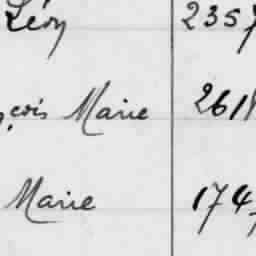 Léon 2357
çois Marie 261
Marie 1747